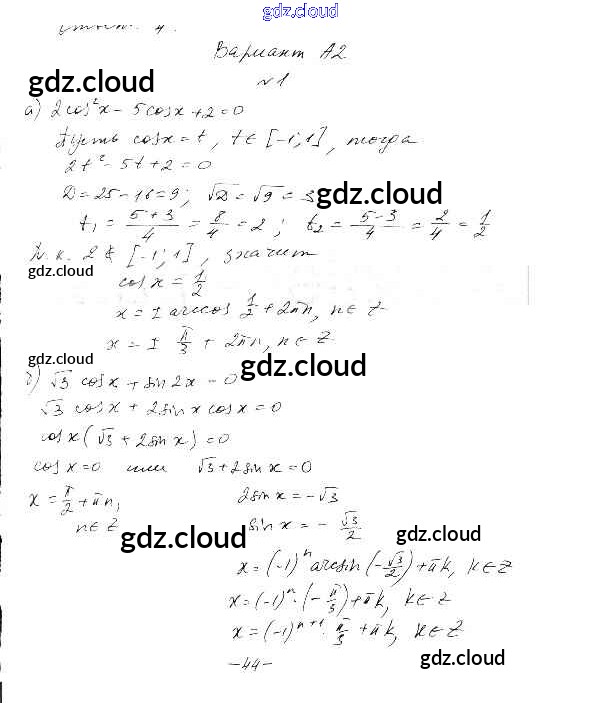 gdz.cloud
Вариант А2
№1
gdz.cloud
а) 2cos²x - 5cosx + 2 = 0
Пусть cosx = t, t ∈ [-1; 1], тогда
2t² - 5t + 2 = 0
D = 25 - 16 = 9; √D = √9 = 3
gdz.cloud
t₁ = (5+3)/4 = 8/4 = 2; t₂ = (5-3)/4 = 2/4 = 1/2
Т.к. 2 ∉ [-1; 1], значит
gdz.cloud
cos x = 1/2
x = ± arccos 1/2 + 2πn, n ∈ Z
x = ± π/3 + 2πn, n ∈ Z
gdz.cloud
gdz.cloud
б) √3 cosx + sin 2x = 0
√3 cosx + 2sin x cosx = 0
cosx (√3 + 2sin x) = 0
cos x = 0 или √3 + 2sin x = 0
x = π/2 + πn, 2sin x = -√3
n ∈ Z sin x = - √3/2
gdz.cloud
gdz.cloud
x = (-1)ⁿ arcsin (-√3/2) + πk, k ∈ Z
x = (-1)ⁿ · (-π/3) + πk, k ∈ Z
x = (-1)ⁿ⁺¹ · π/3 + πk, k ∈ Z
-44-
gdz.cloud